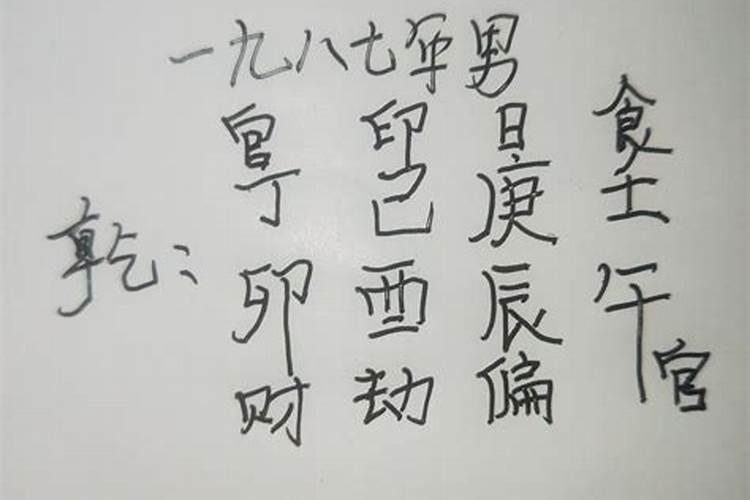 一九八七年男
官 印 日 食
丁 己 庚 壬
乾:
卯 酉 辰 午
财 劫 偏 官